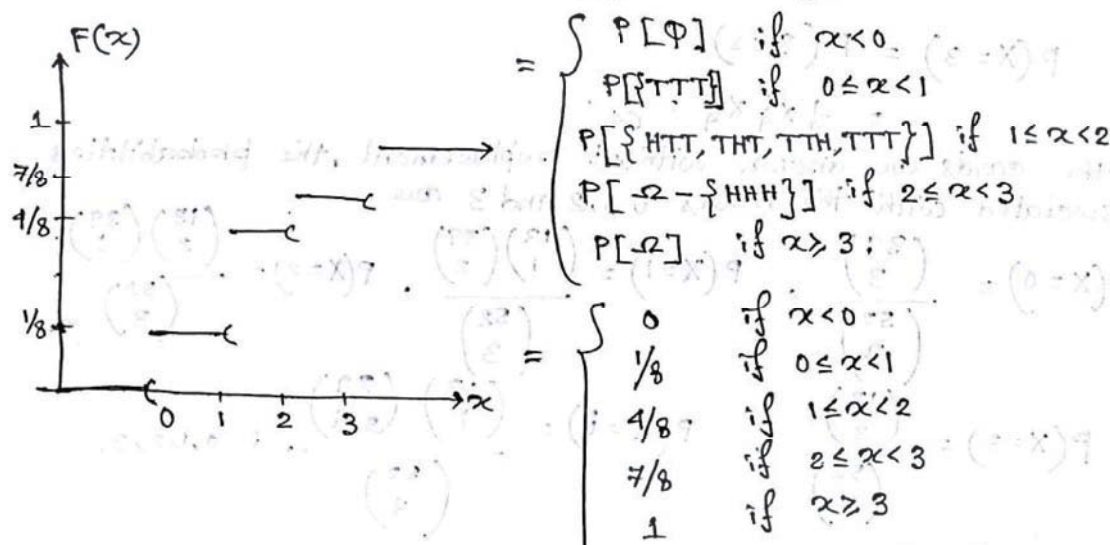 F(x)
1
7/8
4/8
1/8
0 1 2 3 x
= { P[Φ] if x<0
P[{TTT}] if 0≤x<1
P[{HTT, THT, TTH, TTT}] if 1≤x<2
P[Ω-{HHH}] if 2≤x<3
P[Ω] if x≥3;
= { 0 if x<0
1/8 if 0≤x<1
4/8 if 1≤x<2
7/8 if 2≤x<3
1 if x≥3